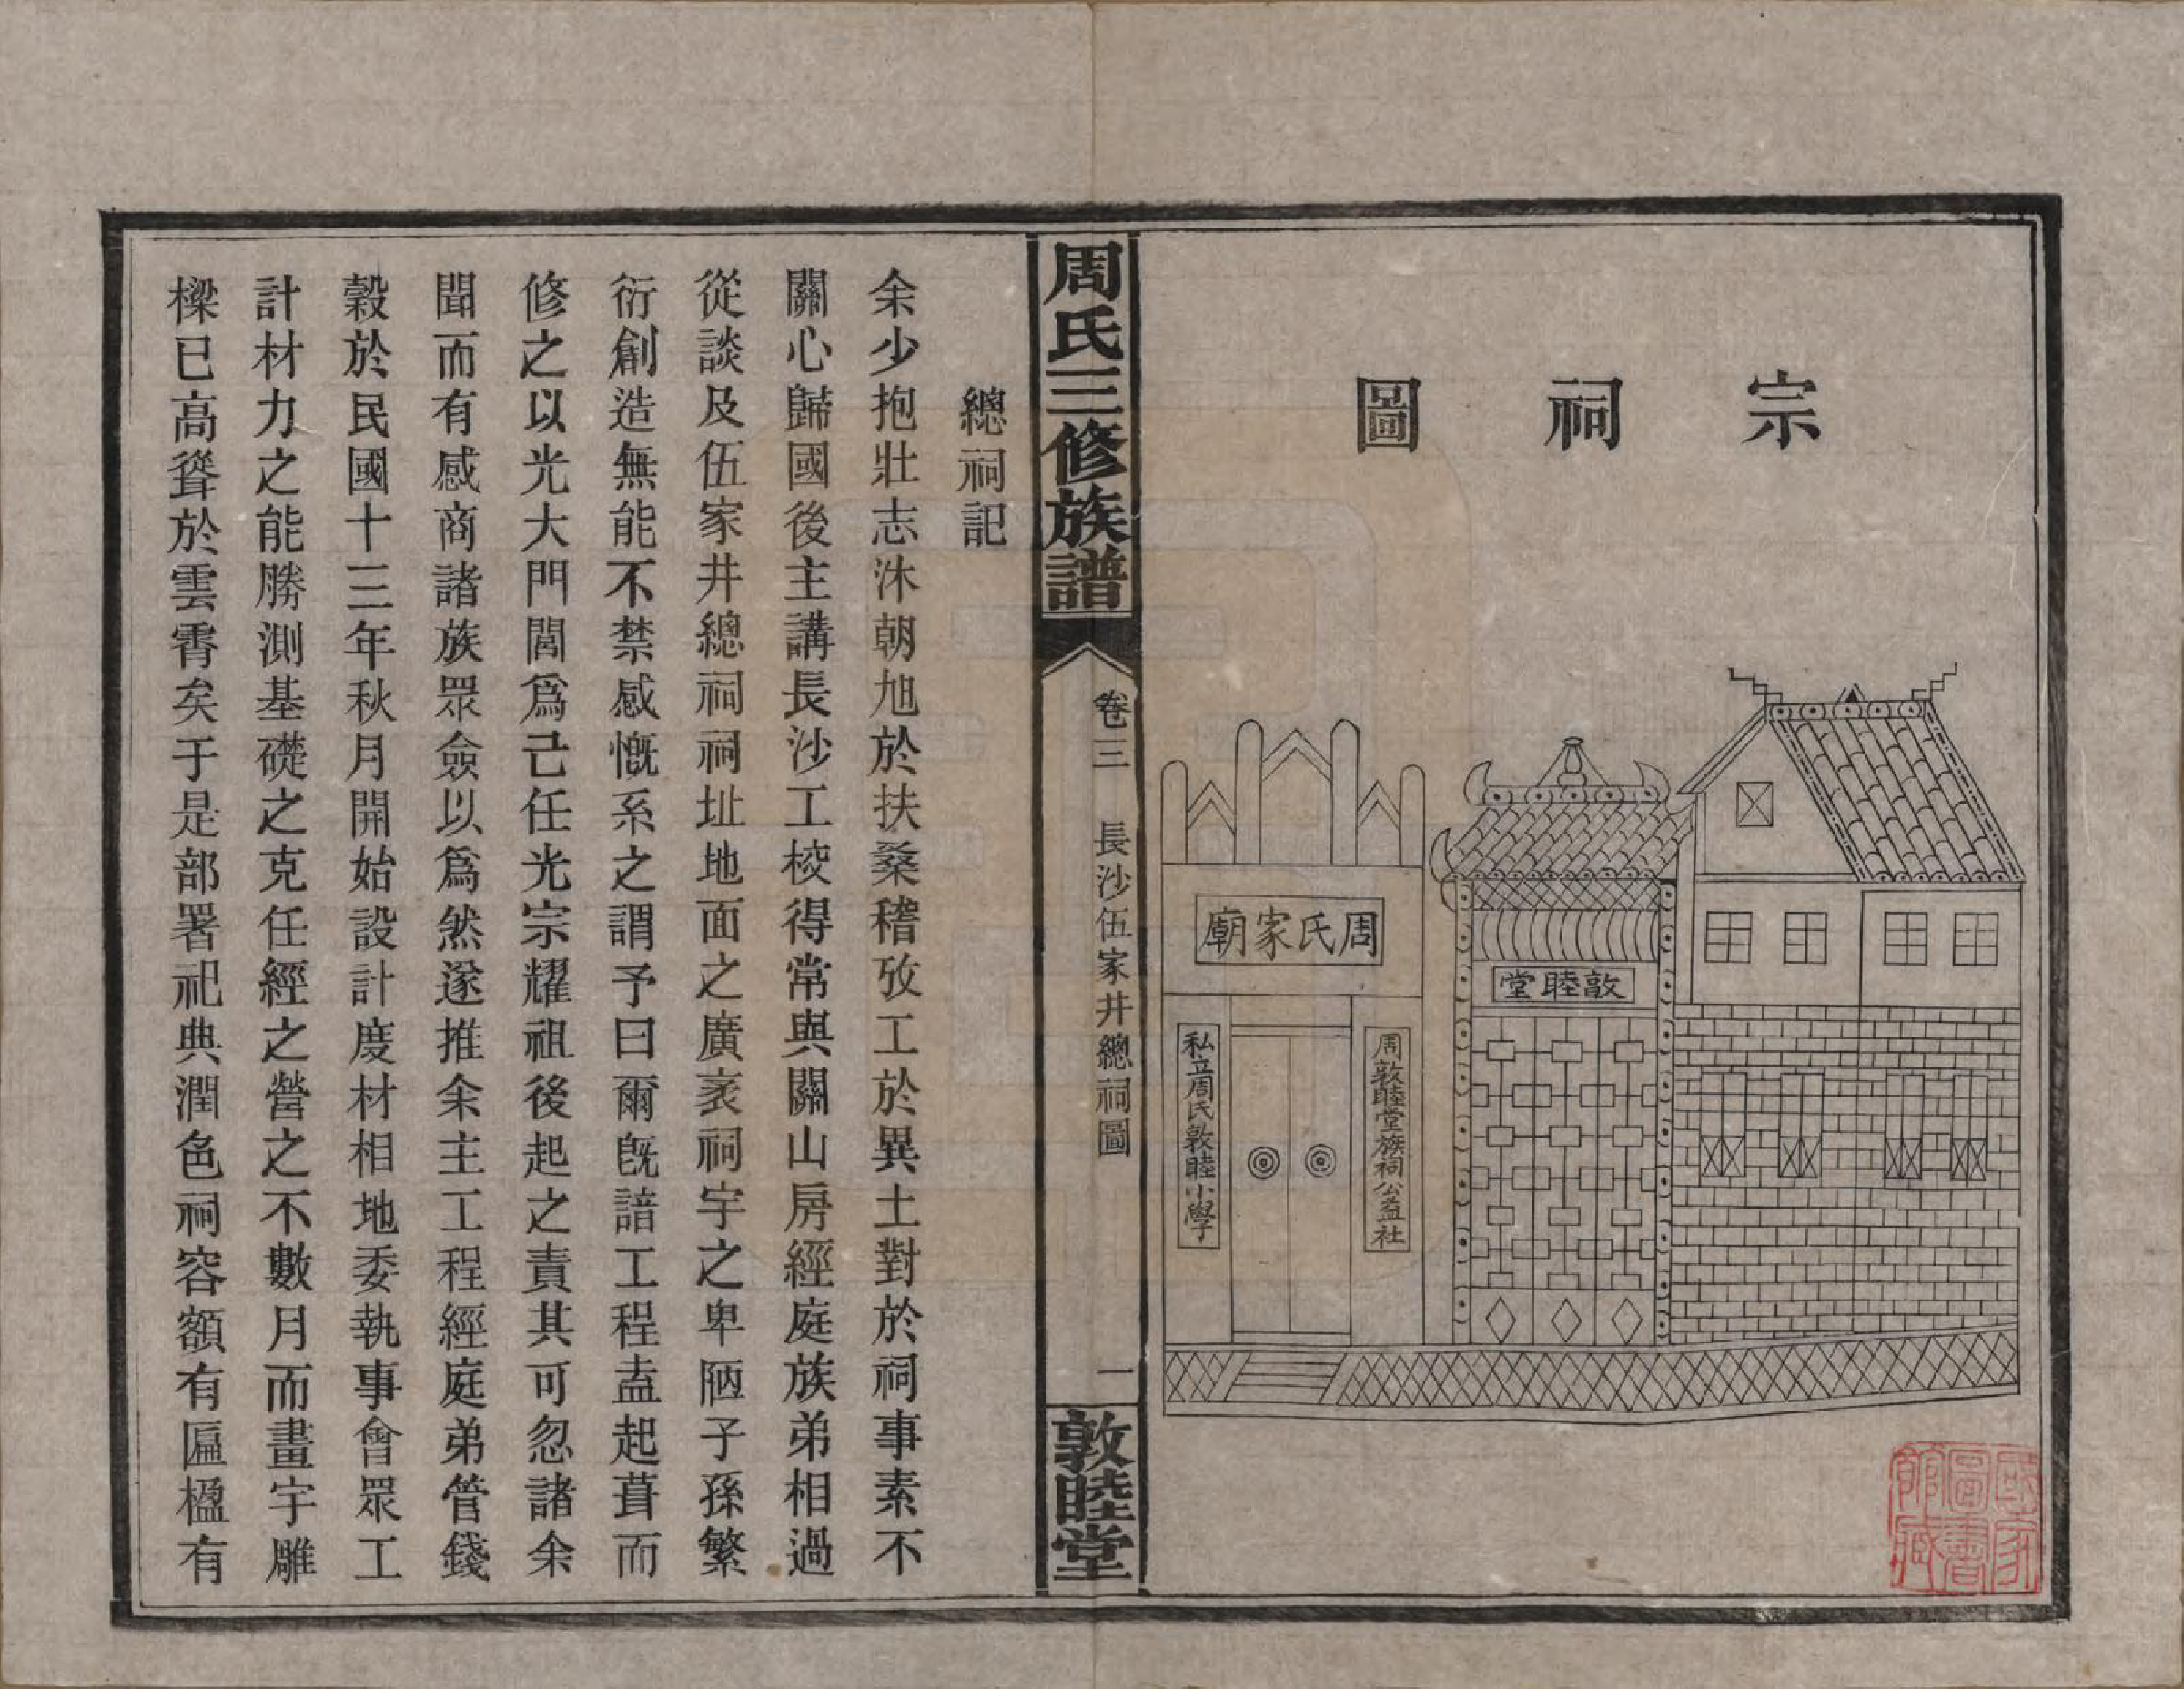 宗祠圖
周氏家廟
敦睦堂
周敦睦堂族祠公益社
私立周氏敦睦小學
國家圖書館藏
周氏三修族譜
卷三 長沙伍家井總祠圖
一
敦睦堂
總祠記
余少抱壯志沐朝旭於扶桑稽攷工於異土對於祠事素不
關心歸國後主講長沙工校得常與關山房經庭族弟相過
從談及伍家井總祠祠址地面之廣袤祠宇之卑陋子孫繁
衍創造無能不禁感慨系之謂予曰爾旣諳工程盍起葺而
修之以光大門閭爲己任光宗耀祖後起之責其可忽諸余
聞而有感商諸族眾僉以爲然遂推余主工程經庭弟管錢
穀於民國十三年秋月開始設計度材相地委執事會眾工
計材力之能勝測基礎之克任經之營之不數月而畫宇雕
樑已高聳於雲霄矣于是部署祀典潤色祠容額有匾楹有